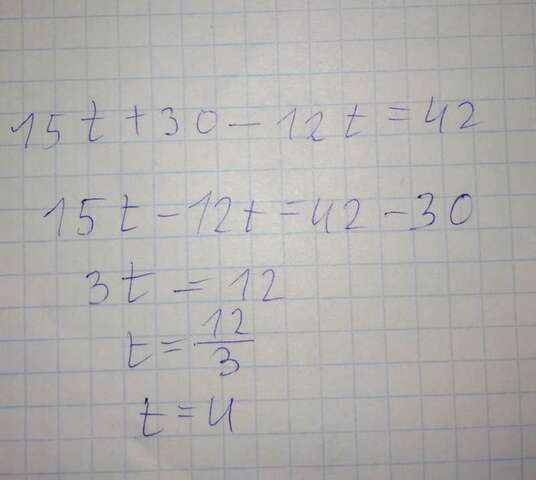 15t + 30 - 12t = 42
15t - 12t = 42 - 30
3t = 12
t = 12/3
t = 4